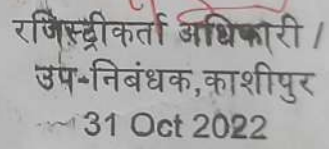 रजिस्ट्रीकर्ता अधिकारी /
उप-निबंधक,काशीपुर
31 Oct 2022